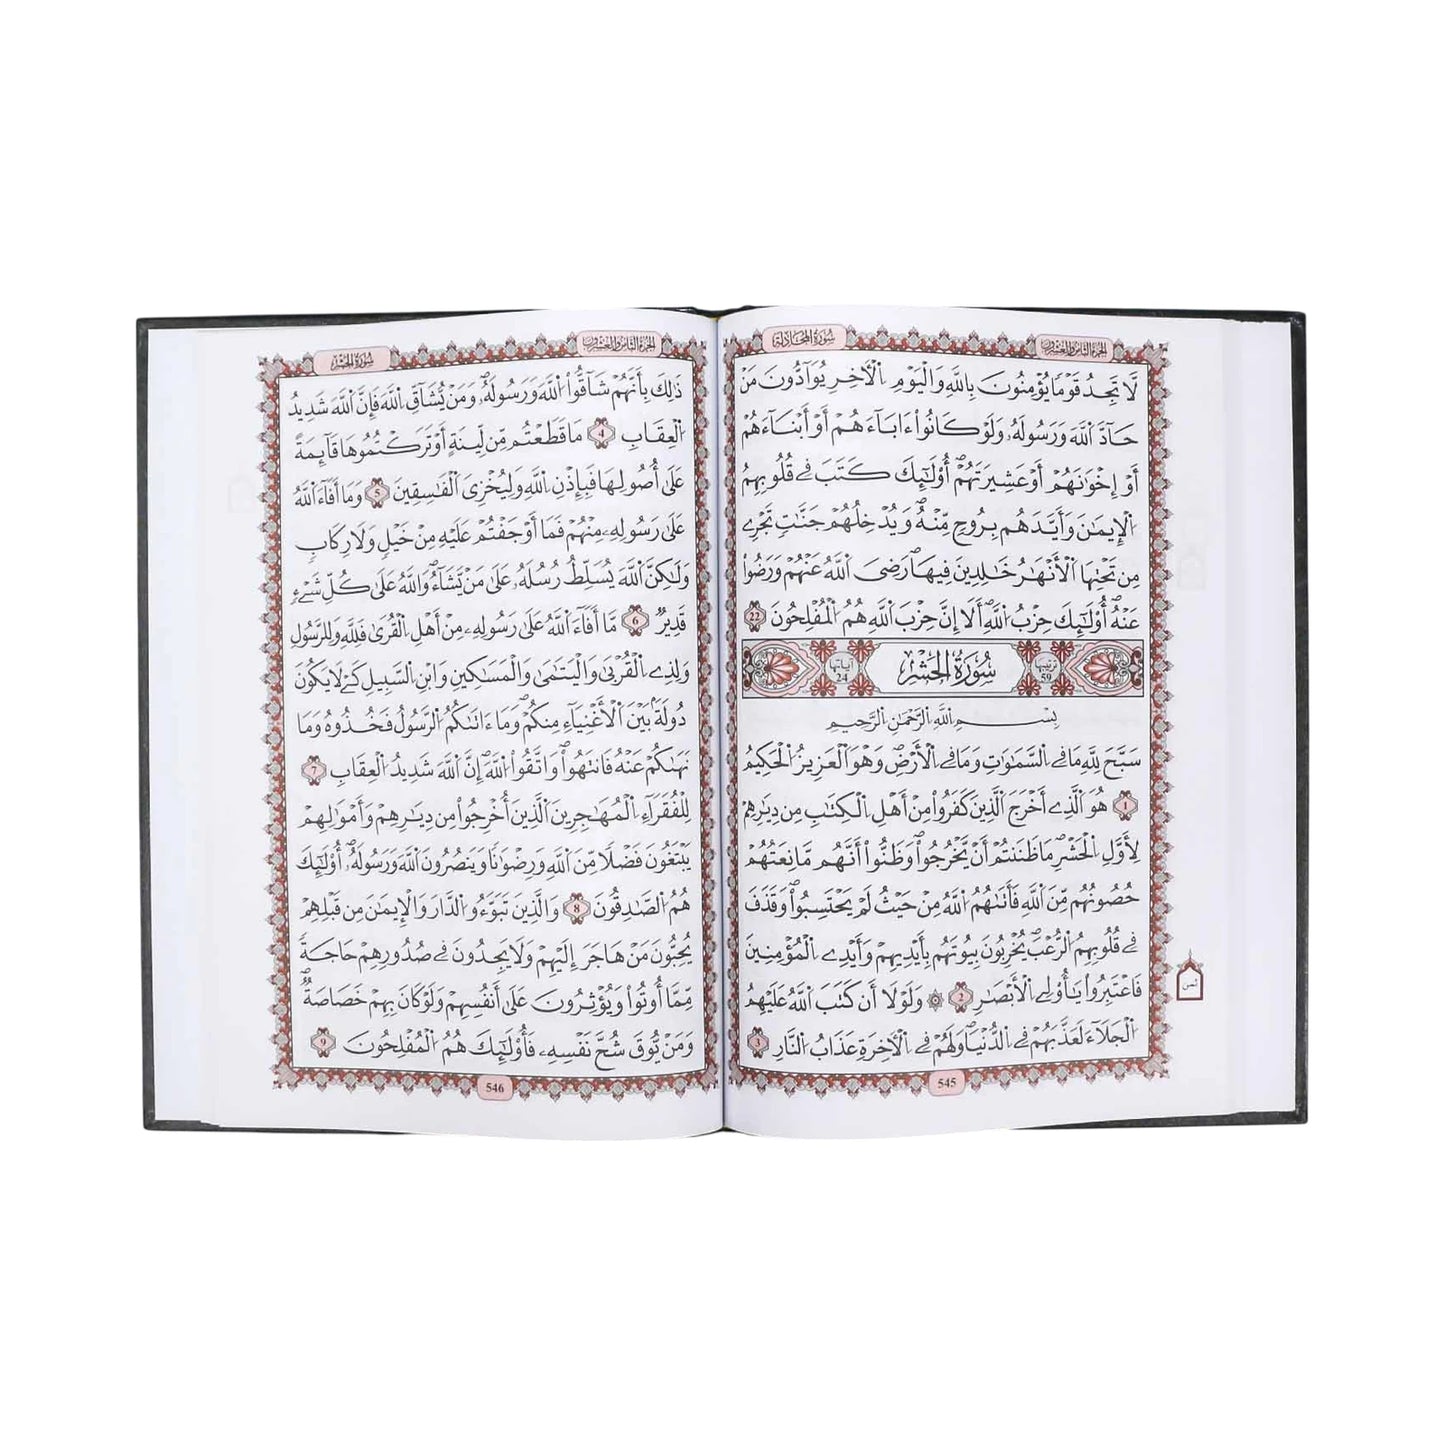 سُورَةُ المُجَادلة
الجزء الثامن والعشرون
لَّا تَجِدُ قَوْمًا يُؤْمِنُونَ بِاللَّهِ وَالْيَوْمِ الْآخِرِ يُوَآدُّونَ مَنْ
حَآدَّ اللَّهَ وَرَسُولَهُ وَلَوْ كَانُوا ءَابَآءَهُمْ أَوْ أَبْنَآءَهُمْ
أَوْ إِخْوَٰنَهُمْ أَوْ عَشِيرَتَهُمْ أُوْلَٰٓئِكَ كَتَبَ فِي قُلُوبِهِمُ
الْإِيمَٰنَ وَأَيَّدَهُم بِرُوحٍ مِّنْهُ وَيُدْخِلُهُمْ جَنَّٰتٍ تَجْرِي
مِن تَحْتِهَا الْأَنْهَٰرُ خَٰلِدِينَ فِيهَا رَضِيَ اللَّهُ عَنْهُمْ وَرَضُوا
عَنْهُ أُوْلَٰٓئِكَ حِزْبُ اللَّهِ أَلَا إِنَّ حِزْبَ اللَّهِ هُمُ الْمُفْلِحُونَ 22
ترتيبها 59 سُورَةُ الحَشْرِ آياتها 24
بِسْمِ اللَّهِ الرَّحْمَٰنِ الرَّحِيمِ
سَبَّحَ لِلَّهِ مَا فِي السَّمَٰوَٰتِ وَمَا فِي الْأَرْضِ وَهُوَ الْعَزِيزُ الْحَكِيمُ
1 هُوَ الَّذِي أَخْرَجَ الَّذِينَ كَفَرُوا مِنْ أَهْلِ الْكِتَٰبِ مِن دِيَٰرِهِمْ
لِأَوَّلِ الْحَشْرِ مَا ظَنَنتُمْ أَن يَخْرُجُوا وَظَنُّوا أَنَّهُم مَّانِعَتُهُمْ
حُصُونُهُم مِّنَ اللَّهِ فَأَتَىٰهُمُ اللَّهُ مِنْ حَيْثُ لَمْ يَحْتَسِبُوا وَقَذَفَ
فِي قُلُوبِهِمُ الرُّعْبَ يُخْرِبُونَ بِيُوتَهُم بِأَيْدِيهِمْ وَأَيْدِي الْمُؤْمِنِينَ
فَاعْتَبِرُوا يَٰٓأُولِي الْأَبْصَٰرِ 2 ۞ وَلَوْلَا أَن كَتَبَ اللَّهُ عَلَيْهِمُ
الْجَلَآءَ لَعَذَّبَهُمْ فِي الدُّنْيَا وَلَهُمْ فِي الْآخِرَةِ عَذَابُ النَّارِ 3
ثمن
545
الجزء الثامن والعشرون
سُورَةُ الحَشْر
ذَٰلِكَ بِأَنَّهُمْ شَآقُّوا اللَّهَ وَرَسُولَهُ وَمَن يُشَاقِّ اللَّهَ فَإِنَّ اللَّهَ شَدِيدُ
الْعِقَابِ 4 مَا قَطَعْتُم مِّن لِّينَةٍ أَوْ تَرَكْتُمُوهَا قَآئِمَةً
عَلَىٰ أُصُولِهَا فَبِإِذْنِ اللَّهِ وَلِيُخْزِيَ الْفَٰسِقِينَ 5 وَمَا أَفَآءَ اللَّهُ
عَلَىٰ رَسُولِهِ مِنْهُمْ فَمَا أَوْجَفْتُمْ عَلَيْهِ مِنْ خَيْلٍ وَلَا رِكَابٍ
وَلَٰكِنَّ اللَّهَ يُسَلِّطُ رُسُلَهُ عَلَىٰ مَن يَشَآءُ وَاللَّهُ عَلَىٰ كُلِّ شَيْءٍ
قَدِيرٌ 6 مَّا أَفَآءَ اللَّهُ عَلَىٰ رَسُولِهِ مِنْ أَهْلِ الْقُرَىٰ فَلِلَّهِ وَلِلرَّسُولِ
وَلِذِي الْقُرْبَىٰ وَالْيَتَٰمَىٰ وَالْمَسَٰكِينِ وَابْنِ السَّبِيلِ كَيْ لَا يَكُونَ
دُولَةً بَيْنَ الْأَغْنِيَآءِ مِنكُمْ وَمَا ءَاتَىٰكُمُ الرَّسُولُ فَخُذُوهُ وَمَا
نَهَىٰكُمْ عَنْهُ فَانتَهُوا وَاتَّقُوا اللَّهَ إِنَّ اللَّهَ شَدِيدُ الْعِقَابِ 7
لِلْفُقَرَآءِ الْمُهَٰجِرِينَ الَّذِينَ أُخْرِجُوا مِن دِيَٰرِهِمْ وَأَمْوَٰلِهِمْ
يَبْتَغُونَ فَضْلًا مِّنَ اللَّهِ وَرِضْوَٰنًا وَيَنصُرُونَ اللَّهَ وَرَسُولَهُ أُوْلَٰٓئِكَ
هُمُ الصَّٰدِقُونَ 8 وَالَّذِينَ تَبَوَّءُو الدَّارَ وَالْإِيمَٰنَ مِن قَبْلِهِمْ
يُحِبُّونَ مَنْ هَاجَرَ إِلَيْهِمْ وَلَا يَجِدُونَ فِي صُدُورِهِمْ حَاجَةً
مِّمَّا أُوتُوا وَيُؤْثِرُونَ عَلَىٰ أَنفُسِهِمْ وَلَوْ كَانَ بِهِمْ خَصَاصَةٌ
وَمَن يُوقَ شُحَّ نَفْسِهِ فَأُوْلَٰٓئِكَ هُمُ الْمُفْلِحُونَ 9
546